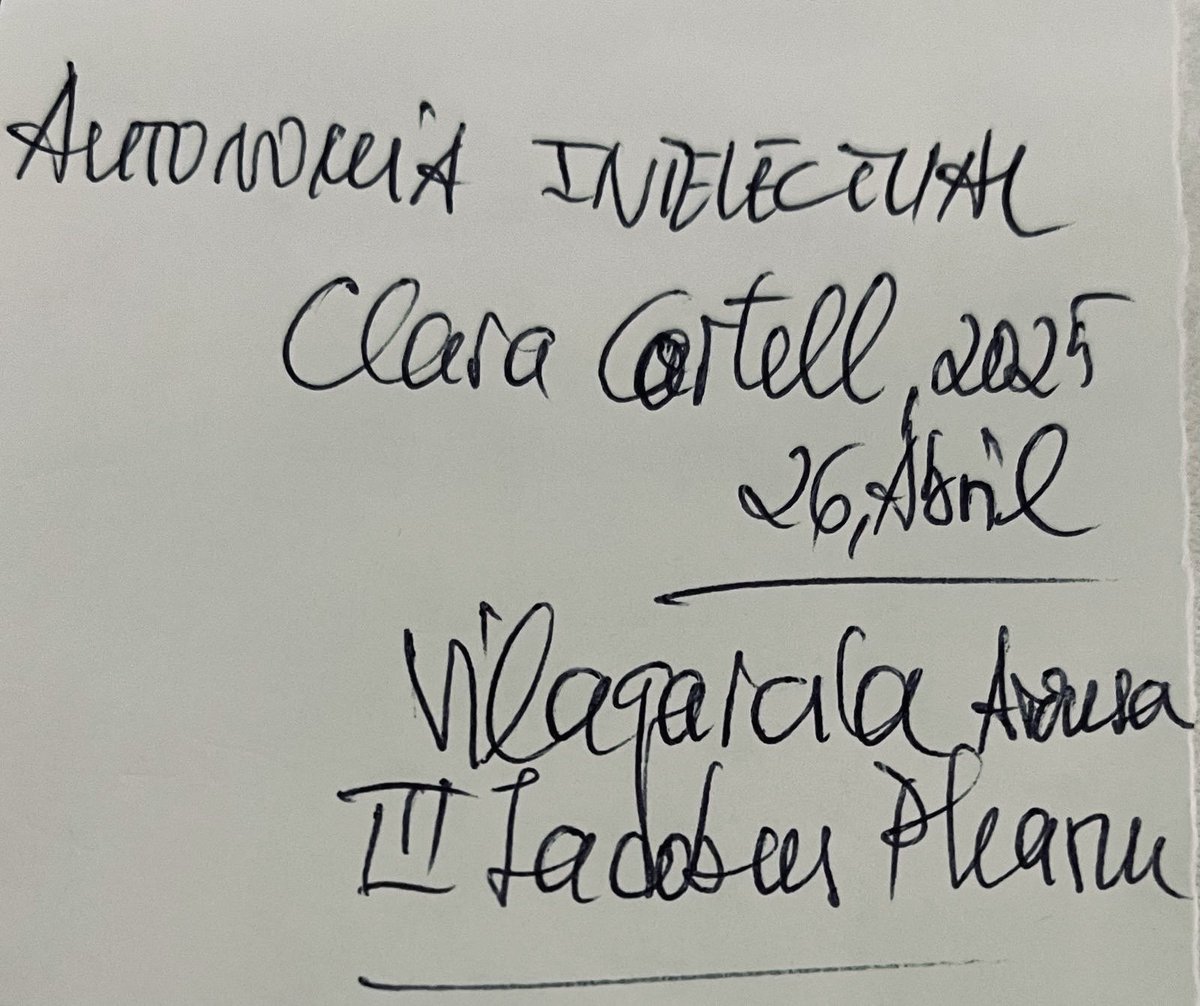 AUTONOMÍA INTELECTUAL
Clara Cortell, 2025
26, Abril
Vilagarcia Arousa
III Iacobus